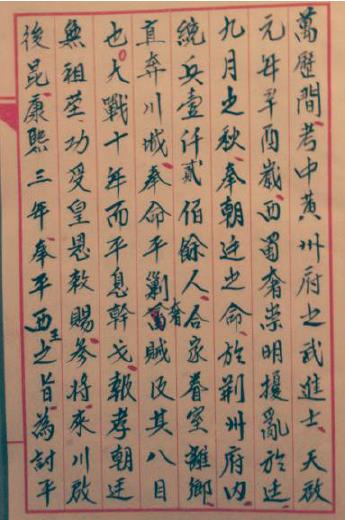 萬歷間考中黃州府之武進士天啟
元年辛酉歲西蜀奢崇明擾亂於廷
九月之秋奉朝廷之命於荆州府内
統兵壹仟貳佰餘人合家眷室離鄉
直奔川城奉命平剿奢賊及其八目
也大戰十年而平息幹戈報孝朝廷
無祖塋功受皇恩敕賜參將來川啟
後昆康熙三年奉平西王之旨為討平